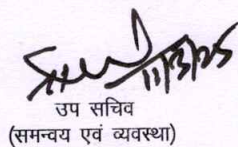 11/3/25
उप सचिव
(समन्वय एवं व्यवस्था)